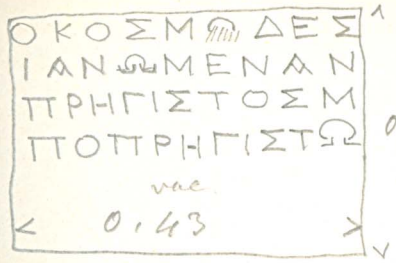 ΟΚΟΣΜΩΔΕΣ
ΙΑΝΩΜΕΝΑΝ
ΠΡΗΓΙΣΤΟΣΜ
ΠΟΠΡΗΓΙΣΤΩ
vac.
0.43